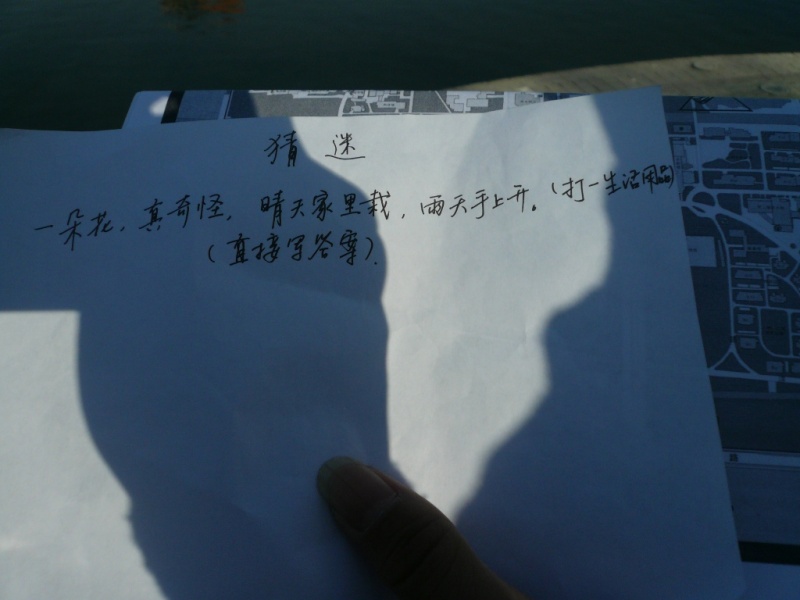 猜 迷
一朵花，真奇怪，晴天家里栽，雨天手上开。（打一生活用品）
（直接写答案）.